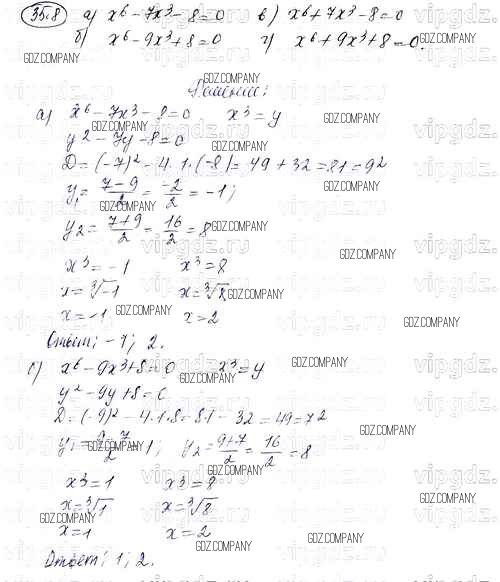 35.8 а) x⁶ - 7x³ - 8 = 0 в) x⁶ + 7x³ - 8 = 0
б) x⁶ - 9x³ + 8 = 0 г) x⁶ + 9x³ + 8 = 0.
Решение:
а) x⁶ - 7x³ - 8 = 0 x³ = y
y² - 7y - 8 = 0
D = (-7)² - 4·1·(-8) = 49 + 32 = 81 = 9²
y₁ = (7-9)/2 = -2/2 = -1;
y₂ = (7+9)/2 = 16/2 = 8
x³ = -1 x³ = 8
x = ∛-1 x = ∛8
x = -1 x = 2
Ответ: -1; 2.
б) x⁶ - 9x³ + 8 = 0 x³ = y
y² - 9y + 8 = 0
D = (-9)² - 4·1·8 = 81 - 32 = 49 = 7²
y₁ = (9-7)/2 = 1; y₂ = (9+7)/2 = 16/2 = 8
x³ = 1 x³ = 8
x = ∛1 x = ∛8
x = 1 x = 2
Ответ: 1; 2.
GDZ.COMPANY
vipgdz.ru